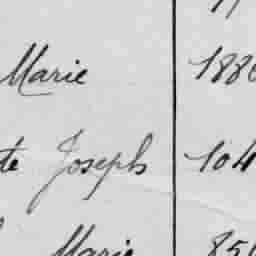 Marie 1886
te Joseph 104
Marie 850